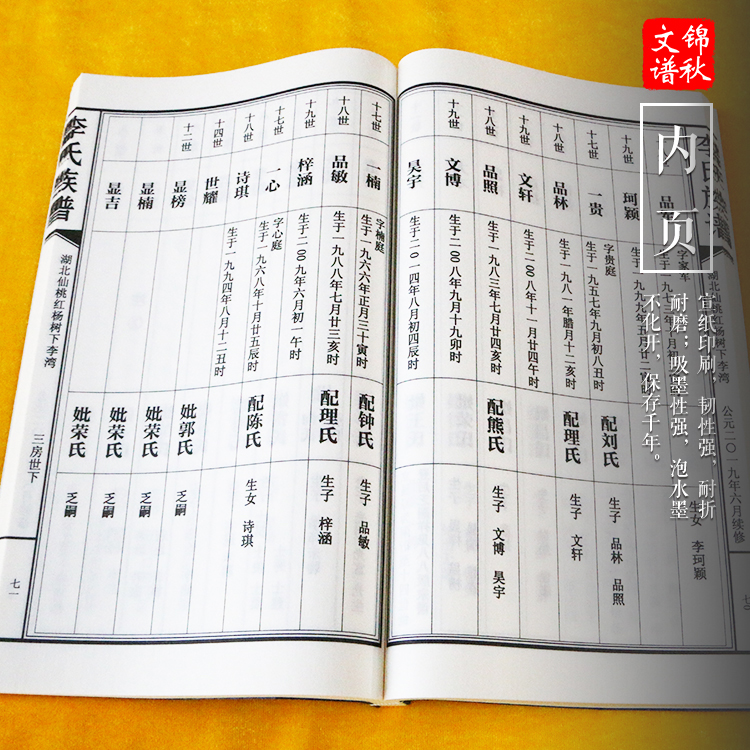 锦秋
文谱
内页
宣纸印刷，韧性强，耐折
耐磨；吸墨性强，泡水墨
不化开，保存千年。
湖北仙桃红杨树下李湾
公元二〇一九年六月续修
生女 李珂颖
十九世 珂颖
十七世 一贵 字贵庭 生于一九五七年九月初八丑时 配刘氏 生子 品林 品照
十八世 品林 生于一九八一年腊月十二亥时 配理氏 生子 文轩
十九世 文轩 生于二00八年十一月廿四午时
十八世 品照 生于一九八三年七月廿四亥时 配熊氏 生子 文博 昊宇
十九世 文博 生于二00八年九月十九卯时
昊宇 生于二0一四年八月初四辰时
十七世 一楠 字楠庭 生于一九六六年正月三十寅时 配钟氏 生子 品敏
十八世 品敏 生于一九八八年七月廿三亥时 配理氏 生子 梓涵
十九世 梓涵 生于二00九年六月初一午时
十七世 一心 字心庭 生于一九六八年十月廿五辰时 配陈氏 生女 诗琪
十八世 诗琪 生于一九九四年八月十二丑时
十四世 世耀
十二世 显榜 妣郭氏 乏嗣
显楠 妣荣氏 乏嗣
显吉 妣荣氏 乏嗣
妣荣氏 乏嗣
李氏族谱
湖北仙桃红杨树下李湾
三房世下
七一